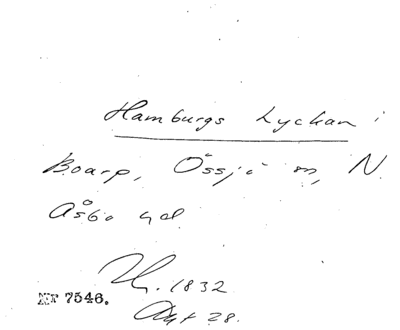 Hamburgs Lyckan i
Boarp, Össjö sn, N.
Åsbo hd.
1832
Akt 28.
Nr 7546.